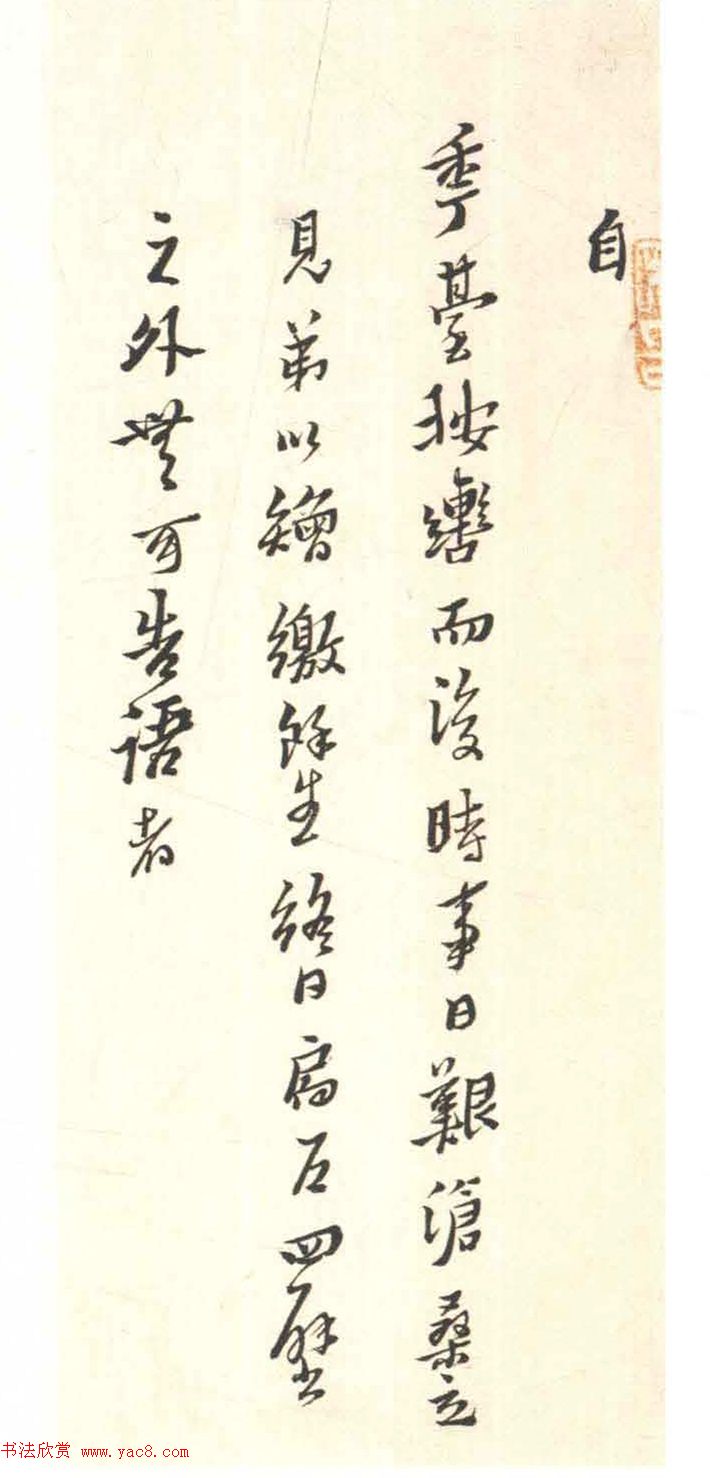 自
秊臺按轡而後時事日艱滄桑立
見弟以矰繳餘生終日扃戶四壁
之外無可告語者
书法欣赏 www.yac8.com